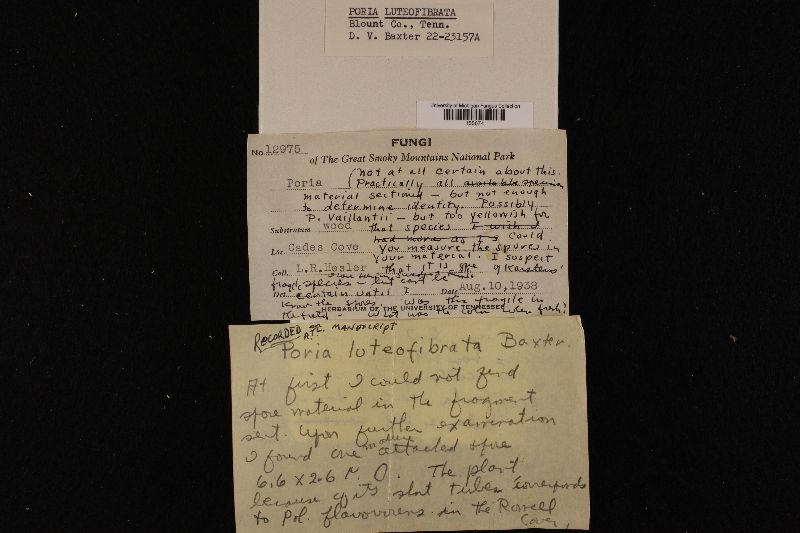 PORIA LUTEOFIBRATA
Blount Co., Tenn.
D. V. Baxter 22-23157A
University of Michigan Fungus Collection
FUNGI
No. 12975
of The Great Smoky Mountains National Park
(not at all certain about this.
Poria (Practically all available specimen
material sectioned - but not enough
to determine identity. Possibly
P. Vaillantii - but too yellowish for
Substratum wood that species I wish I
had more as Is Could
Loc. Cades Cove You measure the spores in
your material. I suspect
Coll. L.R. Hesler that it is one of Karstens'
fragile species - but can't be
Det. certain until I Date Aug. 10, 1938
know the spores. Was this fragile in
HERBARIUM OF THE UNIVERSITY OF TENNESSEE
the field - What was the color when fresh?
RECORDED MANUSCRIPT
Poria luteofibrata Baxter.
At first I could not find
spore material in the fragment
sent. Upon further examination
I found one attached spore
6.6 x 2.6 µ. The plant
because of its short tubes corresponds
to Pol. flavovirens in the Ravenel